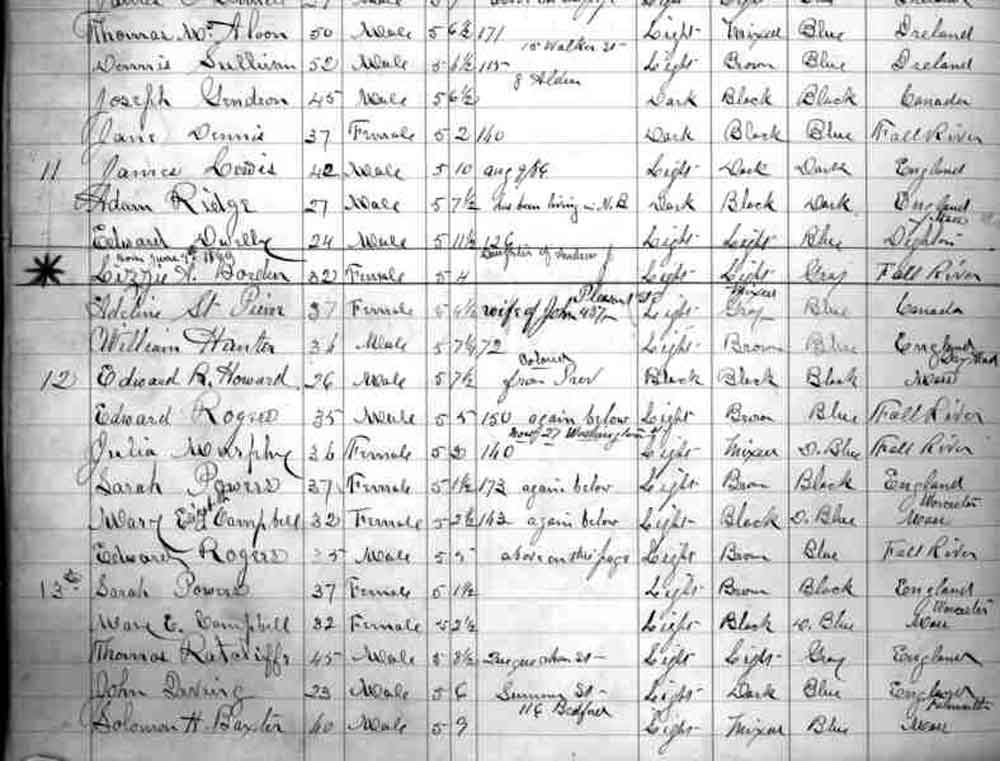 Thomas Mc Aloon 50 Male 5 6½ 171 Light Mixed Blue Ireland
15 Walker St
Dennis Sullivan 52 Male 5 6½ 115 Light Brown Blue Ireland
8 Alden
Joseph Gendron 45 Male 5 6½ Dark Black Black Canada
Jane Dennis 37 Female 5 2 140 Dark Black Blue Fall River
11 James Lewis 42 Male 5 10 Light Dark Dark England
Adam Ridge 27 Male 5 7½ has been living in N.B Dark Black Dark England
Edward 24 Male 5 11½ 126 Light Light Blue Dighton Mass
born June 1860 Daughter of Andrew J
Lizzie A. Borden 32 Female 5 4 Light Light Gray Fall River
Mixed
Adeline St Pierre 37 Female 5 4½ wife of John 437 Pleasant St Light Gray Blue Canada
William Hunter 36 Male 5 7¼ 172 Light Brown Blue England
Colored
12 Edward R. Howard 26 Male 5 7½ from Prov Black Black Black Mass
Edward Rogers 35 Male 5 5 150 again below Light Brown Blue Fall River
now 27 Washington St
Julia Murphy 36 Female 5 2 140 Light Mixed D. Blue Fall River
Sarah Powers 37 Female 5 1½ 173 again below Light Brown Black England
Mary Campbell 32 Female 5 2½ 143 again below Light Black D. Blue Worcester Mass
Edward Rogers 35 Male 5 5 above on this page Light Brown Blue Fall River
13th Sarah Powers 37 Female 5 1½ Light Brown Black England
Mary E. Campbell 32 Female 5 2½ Light Black D. Blue Worcester Mass
Thomas Ratcliffe 45 Male 5 8½ Quequechan St Light Light Gray England
John 23 Male 5 6 Light Dark Blue England
116 Bedford
Solomon H. Baxter 40 Male 5 9 Light Mixed Blue Falmouth Mass